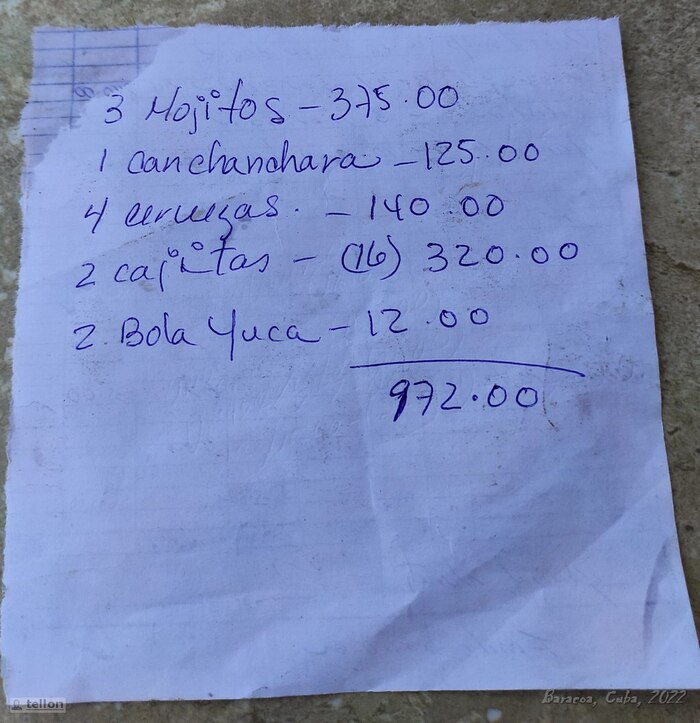 3 Mojitos – 375.00
1 canchanchara – 125.00
4 cervezas. – 140.00
2 cajitas – (16) 320.00
2. Bola Yuca – 12.00
972.00
tellon
Baracoa, Cuba, 2022